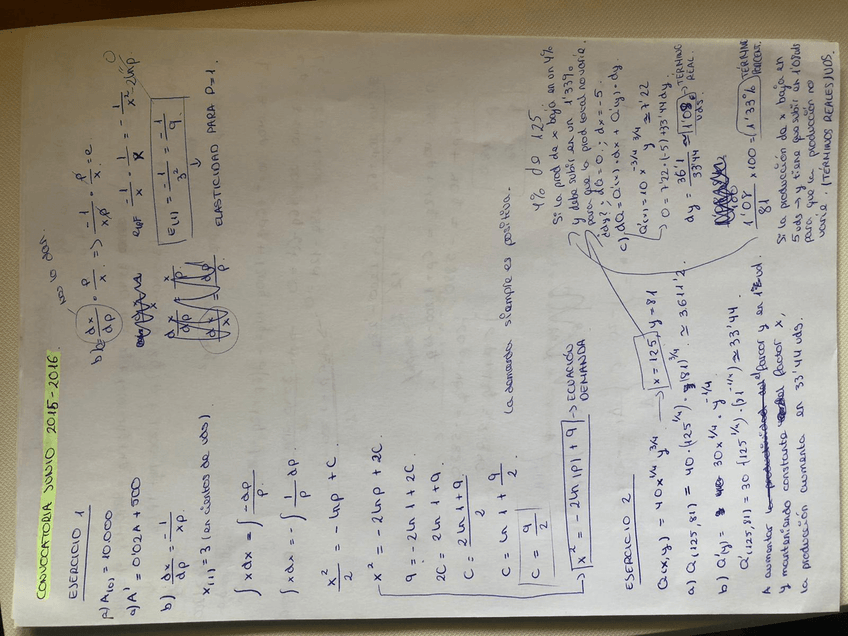 CONVOCATORIA JUNIO 2015-2016
EJERCICIO 1
A(0) = 10.000
a) A' = 0'02A + 500
b) dx/dp = -1/xp
x(1) = 3 (en cientos de uds)
∫ x dx = ∫ -dp/p
∫ x dx = -∫ 1/p dp
x²/2 = -ln p + C
x² = -2 ln p + 2C
9 = -2 ln 1 + 2C
2C = 2 ln 1 + 9
C = 2 ln 1 + 9 / 2
C = ln 1 + 9/2
C = 9/2
la demanda siempre es positiva.
x² = -2 ln |p| + 9 → ECUACIÓN DEMANDA
nos lo dan
dx/dp · p/x => -1/xp · p/x = e
-1/x · 1/x = -1/x²
E(1) = -1/3² = -1/9
↓
ELASTICIDAD PARA P=1.
EJERCICIO 2
Q(x,y) = 40x^1/4 y^3/4 → x = 125, y = 81
a) Q(125,81) = 40·(125^1/4)·(81)^3/4 ≃ 3611'2
b) Q'(y) = 30x^1/4 · y^-1/4
Q'(125,81) = 30 (125^1/4)·(81^-1/4) ≃ 33'44
A aumentar el factor y en 1 ud.
y manteniendo constante factor x,
la producción aumenta en 33'44 uds.
4% de 125
Si la prod de x baja en un 4%
y debe subir en un 1'33%
para que la prod total no varie.
¿dy?; dQ = 0; dx = -5.
c) dQ = Q'(x)·dx + Q'(y)·dy
Q'(x) = 10x^-3/4 y^3/4 ≃ 7'22
0 = 7'22·(-5) + 33'44 dy
dy = 36'1/33'44 ≃ 1'08 uds → TÉRMINO REAL
1'08/81 x 100 = 1'33% TÉRMINO PORCENT.
Si la producción de x baja en
5 uds → y tiene que subir en 1'08 uds
para que la producción no
varie. (TÉRMINOS REALES/UDS.)